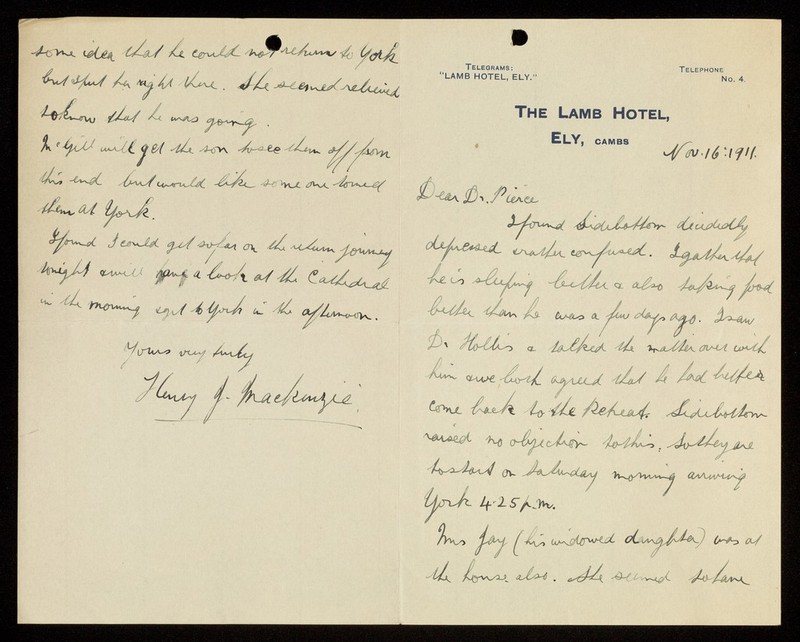 TELEGRAMS:
"LAMB HOTEL, ELY."
TELEPHONE
No. 4.
THE LAMB HOTEL,
ELY, CAMBS
Nov. 16: 1911.
Dear Dr. Pierce
I found Sidebottom decidedly
depressed & rather confused. I gather that
he is sleeping better & also taking food
better than he was a few days ago. I saw
Dr Hollis & talked the matter over with
him & we both agreed that he had better
come back to the Retreat. Sidebottom
raised no objection to this, so they are
to start on Saturday morning arriving
York 4.25 p.m.
Mrs Jay (his widowed daughter) was at
the house also. She seemed to have
some idea that he could not return to York
but I put her right there. She seemed relieved
to know that he was going.
McGill will get the son to see them off from
this end but would like some one to meet
them at York.
I found I could get so far on the return journey
tonight & will have a look at the Cathedral
in the morning & get to York in the afternoon.
Yours very truly
Henry J. Mackenzie.